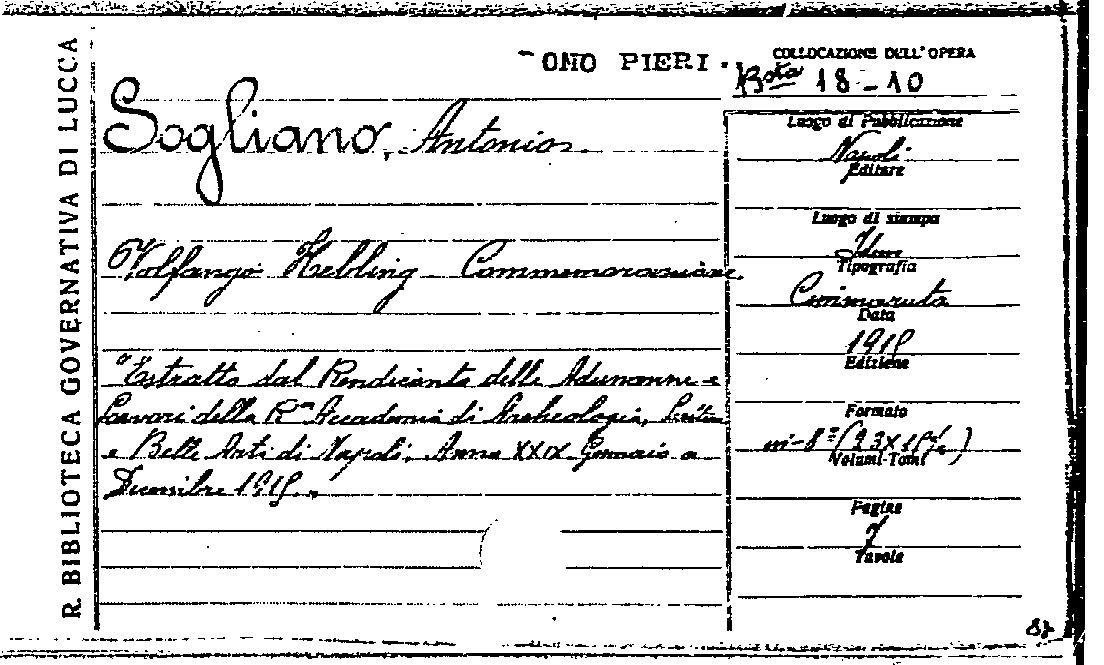 R. BIBLIOTECA GOVERNATIVA DI LUCCA
ONO PIERI.
COLLOCAZIONE DELL'OPERA
Bsta 18-10
Sogliano, Antonio.
Volfango Helbig - Commemorazione.
"Estratto dal Rendiconto delle Adunanze e
Lavori della R. Accademia di Archeologia, Lettere
e Belle Arti di Napoli. Anno XXIX Gennaio a
Dicembre 1915."
Luogo di Pubblicazione
Napoli
Editore
Luogo di stampa
Idem
Tipografia
Cimmaruta
Data
1915
Edizione
Formato
in-8°
Volumi-Tomi
Pagine
7
Tavole
87